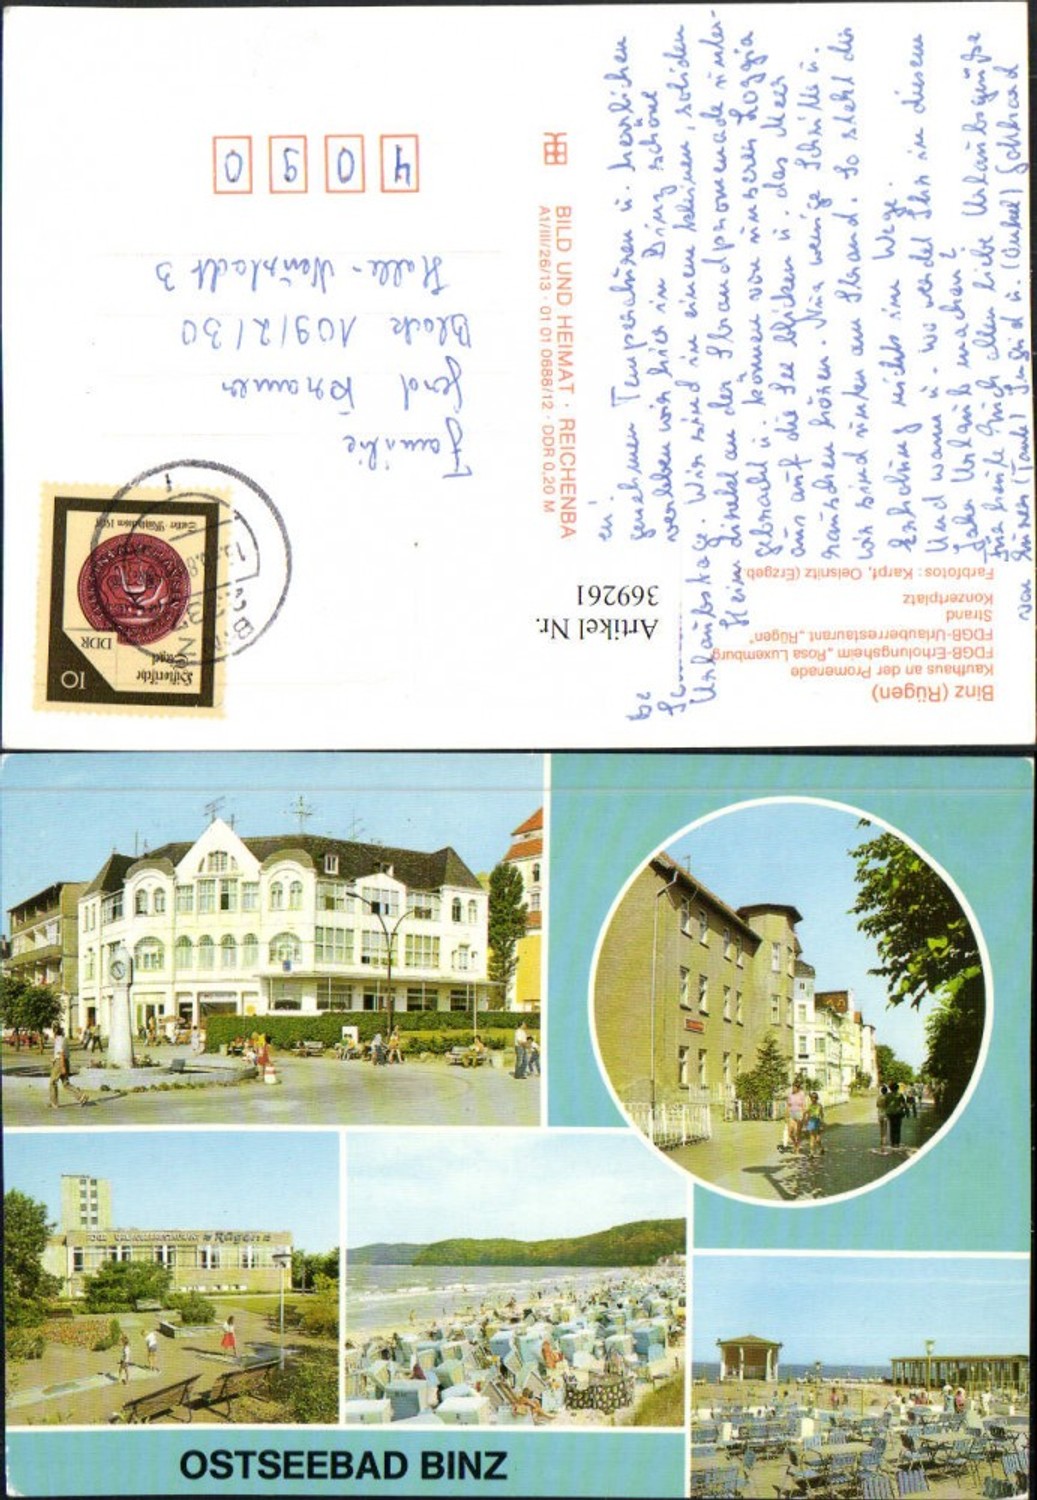 Binz (Rügen)
Kaufhaus an der Promenade
FDGB-Erholungsheim „Rosa Luxemburg
FDGB-Urlauberrestaurant „Rügen"
Strand
Konzertplatz
Farbfotos: Karpf, Oelsnitz (Erzgeb.
Artikel Nr.
369261
genehmen Temperaturen u. herrlichen
verleben wir hier in Binz schöne
Urlaubstage. Wir sind in einem kleinen, soliden
Heim direkt an der Strandpromenade unter-
gebracht u. können von unserer Loggia
aus auf die See blicken u. das Meer
rauschen hören. Nur wenige Schritte u.
wir sind unten am Strand. So steht der
Erholung nichts im Wege.
Und wann u. wo werdet Ihr in diesem
Jahr Urlaub machen?
Für heute Euch allen liebe Urlaubsgrüße
von Eurer (Tante) Ingrid u. (Onkel) Gotthard
BILD UND HEIMAT · REICHENBA
A1/III/26/13 · 01 01 0688/12 · DDR 0,20 M
10
Historische
Siegel
DDR
Familie
Gerd
Block 109/2/30
Halle-Neustadt 3
4 0 9 0
Rügen
OSTSEEBAD BINZ